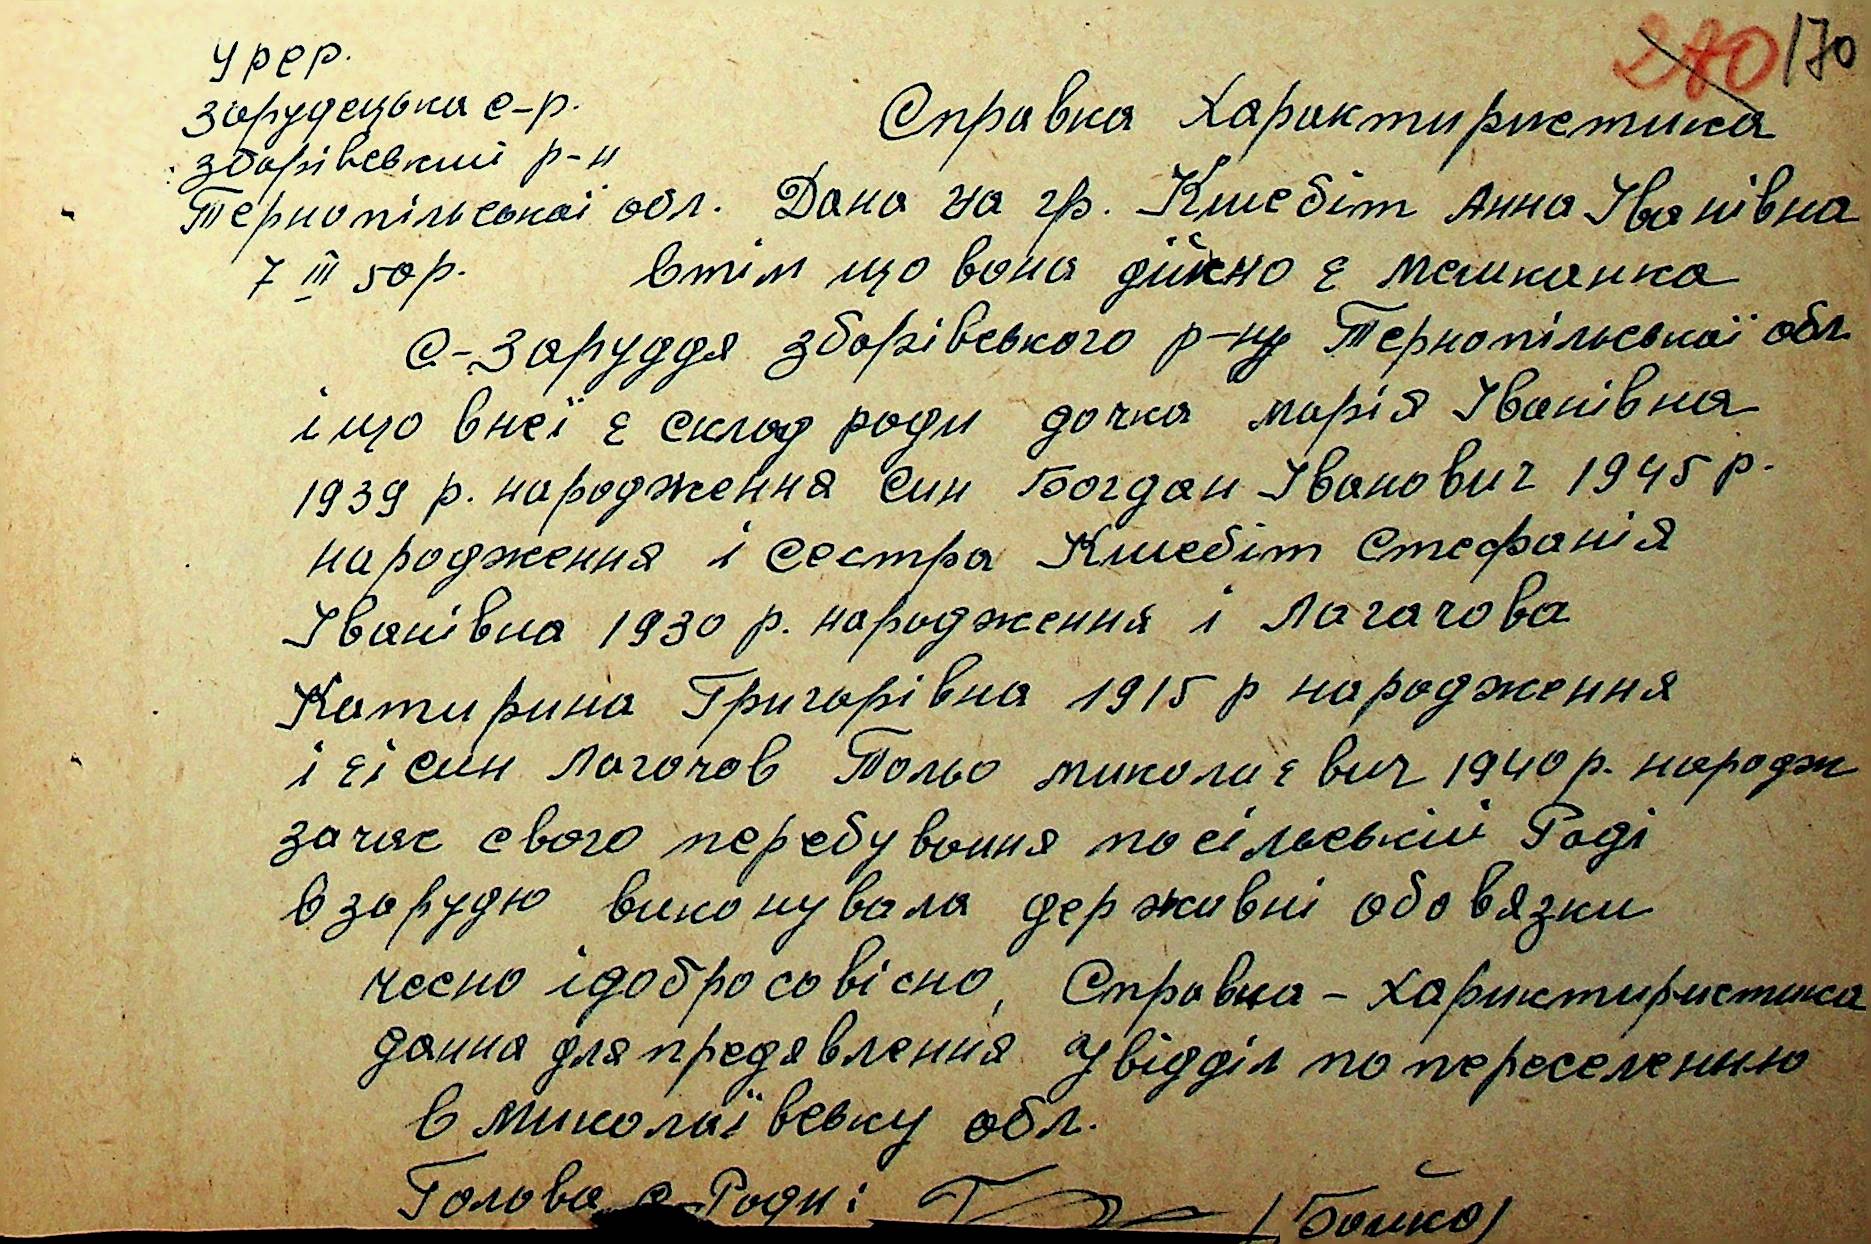 270 170
урер.
Зарудецька с-р.
Зборівський р-н
Справка Характиристика
Тернопільської обл. Дана на гр. Кшебіт Анна Іванівна
7 III 50р. втім що вона дійсно є мешканка
с-Заруддя зборівського р-ну Тернопільської обл.
і що внеї є склад роди дочка марія Іванівна
1939 р. народження син Богдан Іванович 1945 р.
народження і сестра Кшебіт Стефанія
Іванівна 1930 р. народження і Лагачова
Катирина Григорівна 1915 р народження
і єі син Лагачов Тольо миколаєвич 1940 р. народж
зачас свого перебування посільській Раді
в зарудю виконувала державні обовязки
чесно ідобросовісно, Справка - характиристика
данна для предявлення увідділ по переселенню
в миколаївську обл.
Голова с-Ради: (Бойко)